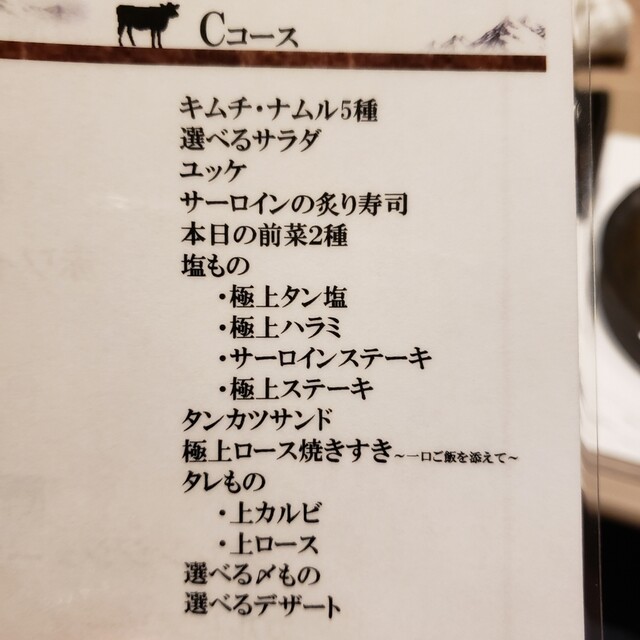 Cコース
キムチ・ナムル5種
選べるサラダ
ユッケ
サーロインの炙り寿司
本日の前菜2種
塩もの
・極上タン塩
・極上ハラミ
・サーロインステーキ
・極上ステーキ
タンカツサンド
極上ロース焼きすき~一口ご飯を添えて~
タレもの
・上カルビ
・上ロース
選べる〆もの
選べるデザート